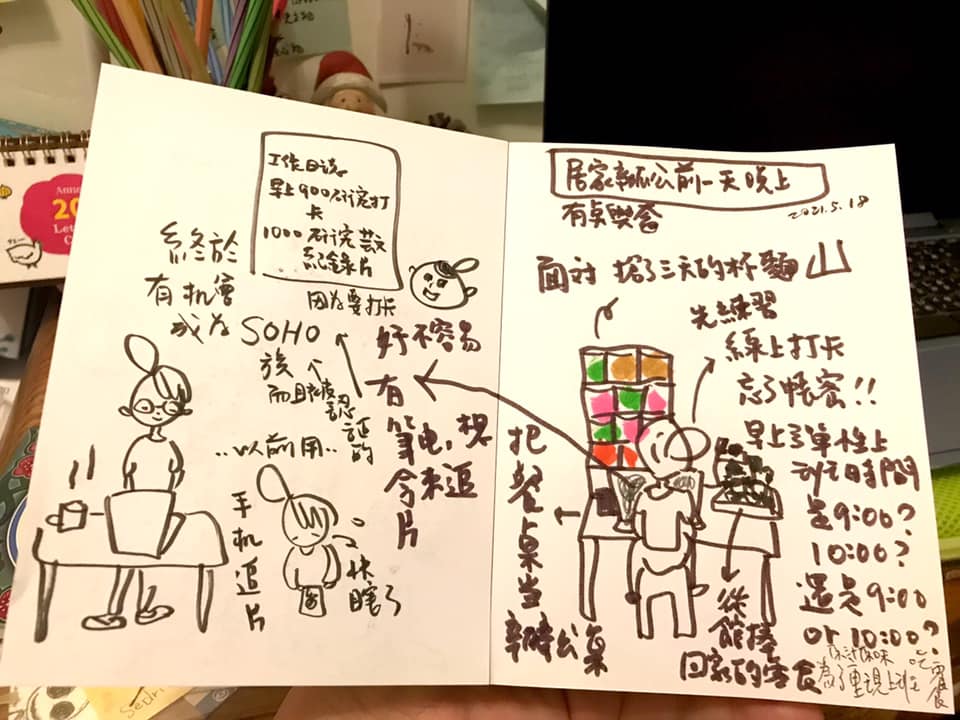 工作日誌
早上900研究打
卡
1000研究芸文
紀錄片
因為要打卡
終於
有机會
成為SOHO
族
而且是被認
証的
‥以前用‥
手机追片
快
瞎了
好不容易
有
筆电,想
拿來追
片
居家辦公前一天晚上
2021.5.18
面対 搶了三天的杯麵山
先練習
線上打卡
忘了帳密!!
早上彈性上
班時間
是9:00?
10:00?
還是9:00
or 10:00?
把餐桌当
辦公桌
從
館捧
回家的零食
為了重現上班
吃零食